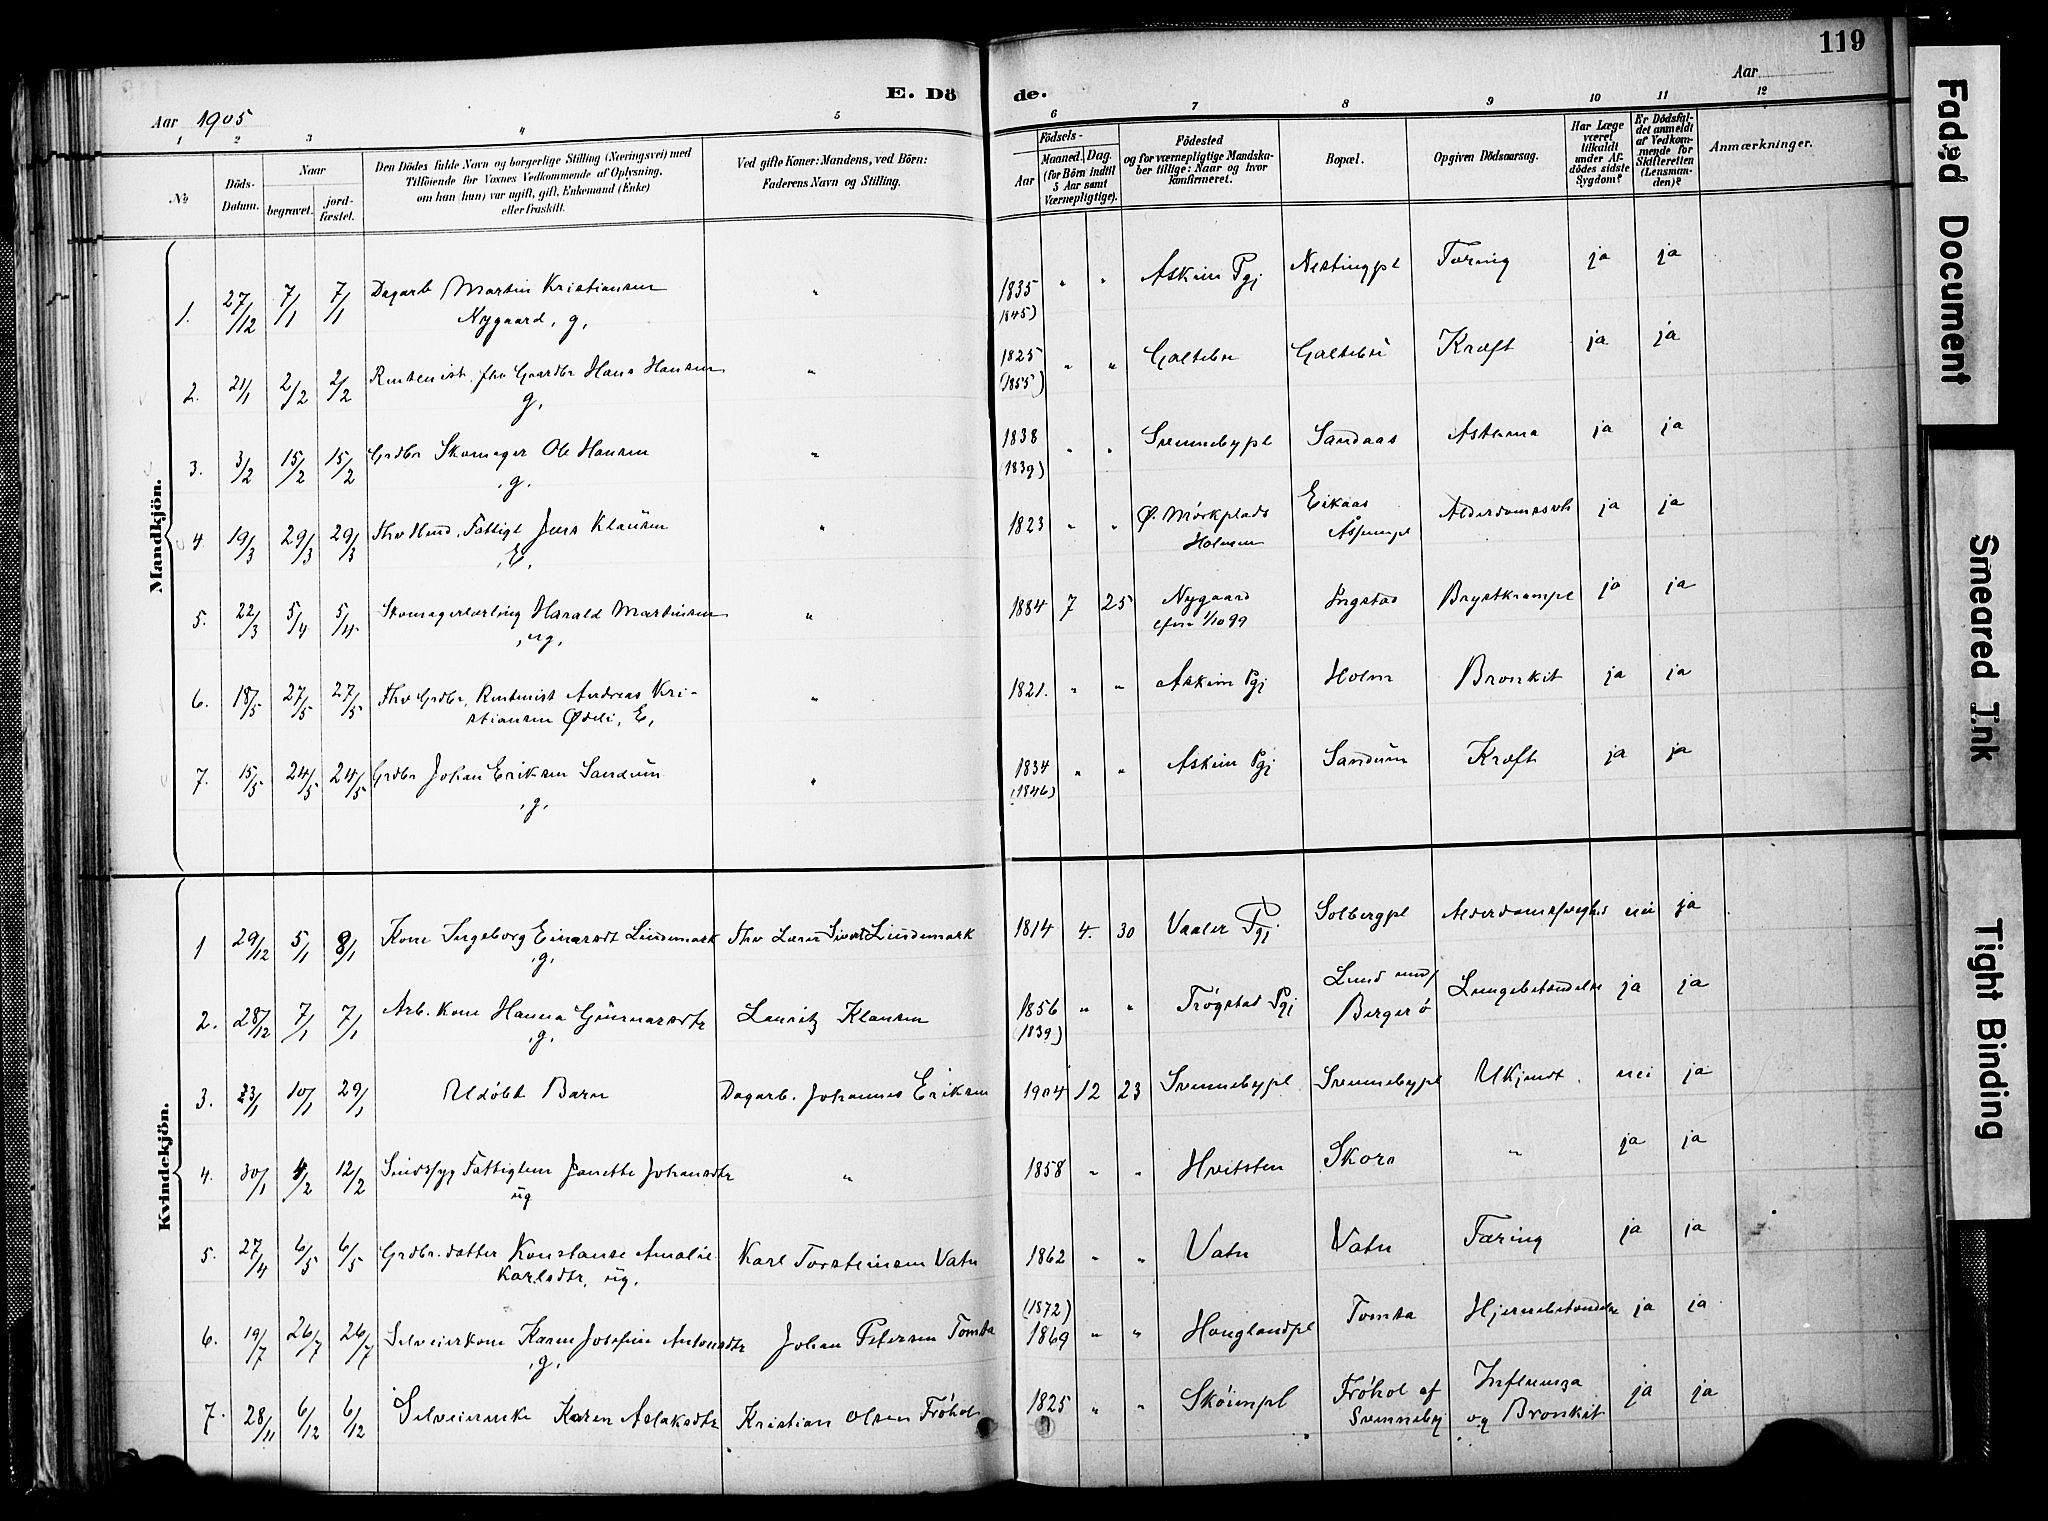 119
Aar
E. Dö de.
Aar 1905
1 2 3 4 5 6 7 8 9 10 11 12
No
Döds-Datum.
Naar
begravet.
jord-fæstet.
Den Dödes fulde Navn og borgerlige Stilling (Næringsvei) med
Tilföiende for Voxnes Vedkommende af Oplysning,
om han (hun) var ugift, gift, Enkemand (Enke)
eller fraskilt.
Ved gifte Koner: Mandens, ved Börn:
Faderens Navn og Stilling.
Födsels-
Aar
Maaned. Dag.
(for Börn indtil
5 Aar samt
Værnepligtige).
Födested
og for værnepligtige Mandska-
ber tillige: Naar og hvor
konfirmeret.
Bopæl.
Opgiven Dödsaarsag.
Har Læge
været
tilkaldt
under Af-
dödes sidste
Sygdom?
Er Dödsfal-
det anmeldt
af Vedkom-
mende for
Skifteretten
(Lensman-
den)?
Anmærkninger.
Mandkjön.
1. 27/12 7/1 7/1 Dagarb Martin Kristiansen " 1835 " " Askim Pgj Nestingpl Tæring ja ja
Nygaard, g, 1845)
2. 21/1 2/2 2/2 Rentenist, fhv Gaardbr Hans Hansen " 1825 " " Galtebø Galtebø Kræft ja ja
g, (1855)
3. 3/2 15/2 15/2 Grdbr Skomager Ole Hansen " 1838 " " Svennebypl Sandaas Asthma ja ja
, g, (1839)
4. 19/3 29/3 29/3 Fhv Hmd, Fattigl Jens Klausen " 1823 " " Ø. Mörkplads Eikaas ja ja
, E, Holmen
5. 22/3 5/4 5/4 Skomagerlærling Harald Martinsen " 1884 7 25 Nygaard Ingstad Brystkrampe ja ja
, ug, 1/10 99
6. 18/5 27/5 27/5 Fhv Grdbr, Rentenist Andreas Kri- " 1821. " " Askim Pgj Holm Bronkit ja ja
stiansen Ødeli, E,
7. 15/5 24/5 24/5 Grdbr Johan Eriksen Sandum " 1834 " " Askim Pgj Sandum Kræft ja ja
, g, (1846)
Kvindekjön.
1 29/12 5/1 8/1 Kone Ingeborg Einarsdt Lindemark Fhv Lærer Sivert Lindemark 1814 4. 30 Vaaler Pgj Solbergpl nei ja
, g,
2. 28/12 7/1 7/1 Arb. kone Hanna Gunnarsdtr Lauritz Klausen 1856 " " Trögstad Pgj Lund Lungebetændelse ja ja
, g, (1839) Bergerö
3. 23/1 10/1 29/1 Udöbt Barn Dagarb. Johannes Eriksen 1904 12 23 Svennebypl Svennebypl Ukjendt. nei ja
4. 30/1 4/2 12/2 Sindssyg Fattiglem Janette Johansdtr " 1858 " " Hvitsten " ja ja
ug
5. 27/4 6/5 6/5 Grdbr. datter Konstanse Amalie Karl Torsteinsen Vatn 1862 " " Vatn Vatn Tæring ja ja
Karlsdtr, ug,
6. 19/7 26/7 26/7 Selveierkone Karen Josefine Antonsdtr Johan Petersen Tomta (1872) 1869 " " Houglandpl Tomta Hjernebetændelse ja ja
, g,
7. 28/11 6/12 6/12 Selveierenke Karen Aslaksdtr Kristian Olsen Fröhol 1825 " " Sköienpl Fröhol af Influenza ja ja
Svenneby og Bronkit
Faded Document
Smeared Ink
Tight Binding